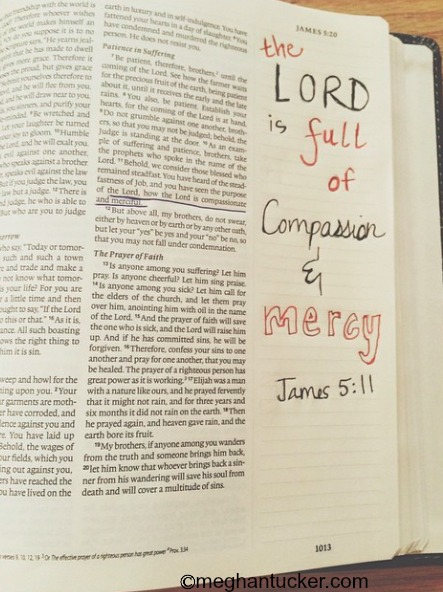 friendship with the world is
God? Therefore whoever wishes
of the world makes himself an
do you suppose it is to no
scripture says, "He yearns jeal-
that he has made to dwell
more grace. Therefore it
the proud, but gives grace
yourselves therefore to
evil, and he will flee from you.
and he will draw near to you.
sinners, and purify your
-minded. ⁹Be wretched and
Let your laughter be turned
your joy to gloom. ¹⁰Humble
Lord, and he will exalt you.
evil against one another,
who speaks against a brother
speaks evil against the law
But if you judge the law, you
but a judge. ¹²There is
judge, he who is able to
But who are you to judge
morrow
who say, "Today or tomor-
such and such a town
and trade and make a
not know what tomor-
is your life? For you are
a little time and then
ought to say, "If the Lord
this or that." ¹⁶As it is,
All such boasting
knows the right thing to
him it is sin.
weep and howl for the
coming upon you. ²Your
garments are moth-
have corroded, and
evidence against you and
You have laid up
Behold, the wages of
your fields, which you
crying out against you,
have reached the
You have lived on the
earth in luxury and in self-indulgence. You have
fattened your hearts in a day of slaughter. ⁶You
have condemned and murdered the righteous
person. He does not resist you.
Patience in Suffering
⁷Be patient, therefore, brothers, until the
coming of the Lord. See how the farmer waits
for the precious fruit of the earth, being patient
about it, until it receives the early and the late
rains. ⁸You also, be patient. Establish your
hearts, for the coming of the Lord is at hand.
⁹Do not grumble against one another, broth-
ers, so that you may not be judged; behold, the
Judge is standing at the door. ¹⁰As an exam-
ple of suffering and patience, brothers, take
the prophets who spoke in the name of the
Lord. ¹¹Behold, we consider those blessed who
remained steadfast. You have heard of the stead-
fastness of Job, and you have seen the purpose
of the Lord, how the Lord is compassionate
and merciful.
¹²But above all, my brothers, do not swear,
either by heaven or by earth or by any other oath,
but let your "yes" be yes and your "no" be no, so
that you may not fall under condemnation.
The Prayer of Faith
¹³Is anyone among you suffering? Let him
pray. Is anyone cheerful? Let him sing praise.
¹⁴Is anyone among you sick? Let him call for
the elders of the church, and let them pray
over him, anointing him with oil in the name
of the Lord. ¹⁵And the prayer of faith will save
the one who is sick, and the Lord will raise him
up. And if he has committed sins, he will be
forgiven. ¹⁶Therefore, confess your sins to one
another and pray for one another, that you may
be healed. The prayer of a righteous person has
great power as it is working. ¹⁷Elijah was a man
with a nature like ours, and he prayed fervently
that it might not rain, and for three years and
six months it did not rain on the earth. ¹⁸Then
he prayed again, and heaven gave rain, and the
earth bore its fruit.
¹⁹My brothers, if anyone among you wanders
from the truth and someone brings him back,
²⁰let him know that whoever brings back a sin-
ner from his wandering will save his soul from
death and will cover a multitude of sins.
verses 9, 10, 12, 19 ² Or The effective prayer of a righteous person has great power
JAMES 5:20
the
LORD
is full
of
Compassion
&
mercy
James 5:11
1013
©meghantucker.com